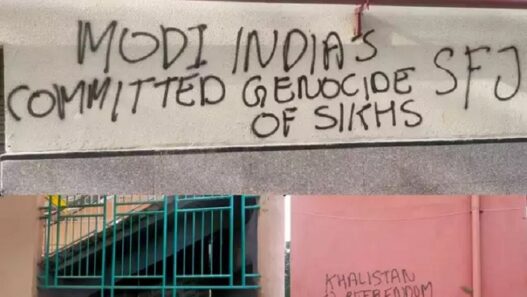 MODI INDIA'S
COMMITTED GENOCIDE SFJ
OF SIKHS
KHALISTAN